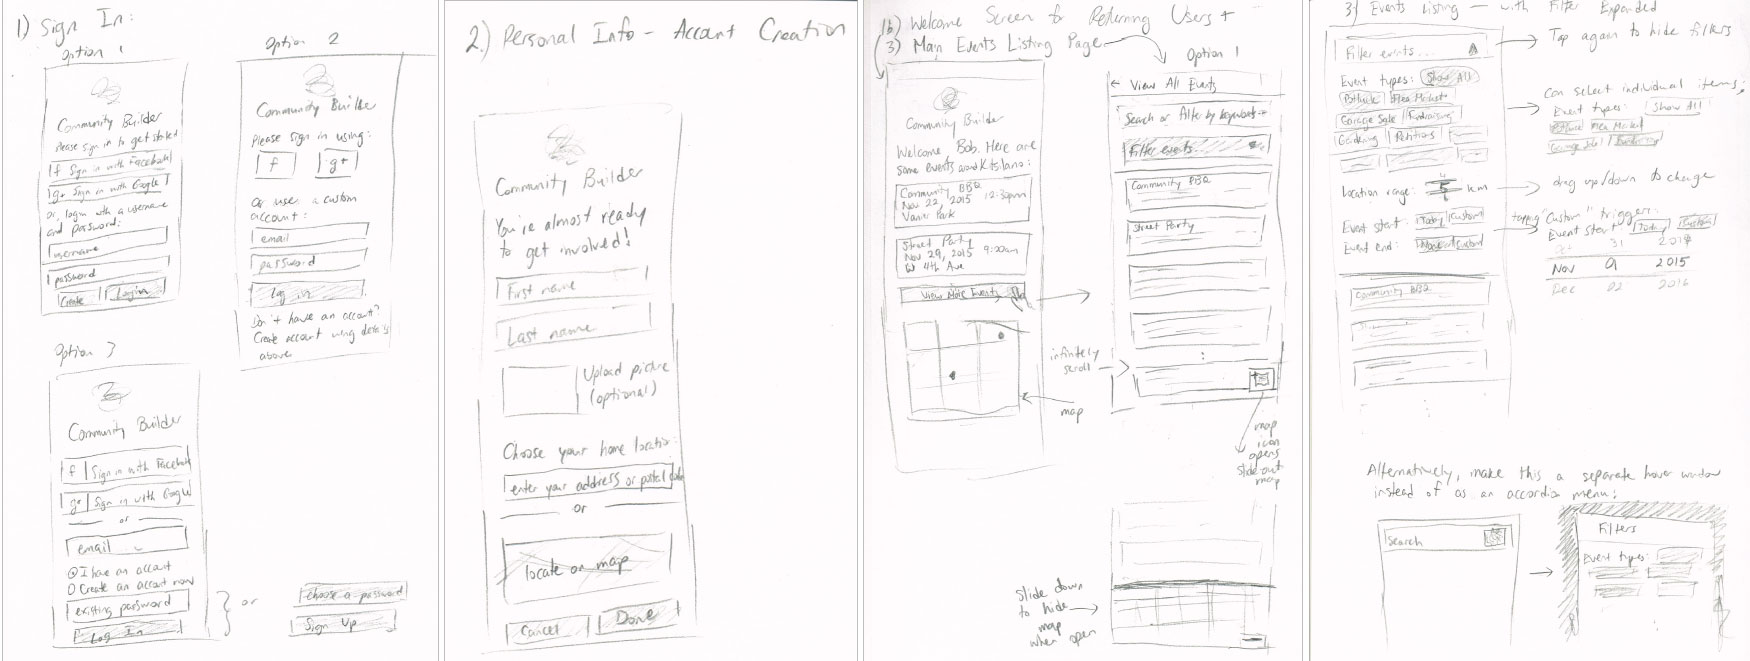 1) Sign In:
Option 1
Community Builder
Please sign in to get started
f Sign in with Facebook
g+ Sign in with Google
or, login with a username
and password:
username
password
Create
Login
Option 2
Community Builder
Please sign in using:
f
g+
Or use a custom
account:
email
password
log in
Don't have an account?
Create account using details
above
Option 3
Community Builder
f Sign in with Facebook
g+ Sign in with Google
or
email
I have an account
Create an account now
existing password
Log In
or
choose a password
Sign Up
2.) Personal Info - Account Creation
Community Builder
You're almost ready
to get involved!
First name
Last name
Upload picture
(optional)
Choose your home location:
enter your address or postal code
or
locate on map
Cancel
Done
1b) Welcome Screen for Returning Users +
3) Main Events Listing Page
Community Builder
Welcome Bob. Here are
some events around Kitsilano:
Community BBQ
Nov 22, 2015 12:30pm
Vanier Park
Street Party
Nov 29, 2015 9:00am
W 4th Ave
View More Events
map
Option 1
← View All Events
Search or filter by keywords
Filter events...
Community BBQ
Street Party
infinitely
scroll
map
icon
opens
slide out
map
slide down
to hide
map
when open
3) Events Listing - with Filter Expanded
Filter events...
Tap again to hide filters
Event types: Show All
Potluck Flea Market
Garage Sale Fundraising
Gardening Petitions
can select individual items:
Event types: Show All
Potluck Flea Market
Garage Sale Fundraising
Location range: 5 km
drag up/down to change
Event start: Today Custom
Event end: Custom
tapping "Custom" triggers:
Event start Today Custom
31
Nov 01 2015
Dec 02 2016
Community BBQ
Alternatively, make this a separate hover window
instead of as an accordion menu:
Search
Filters
Event types: